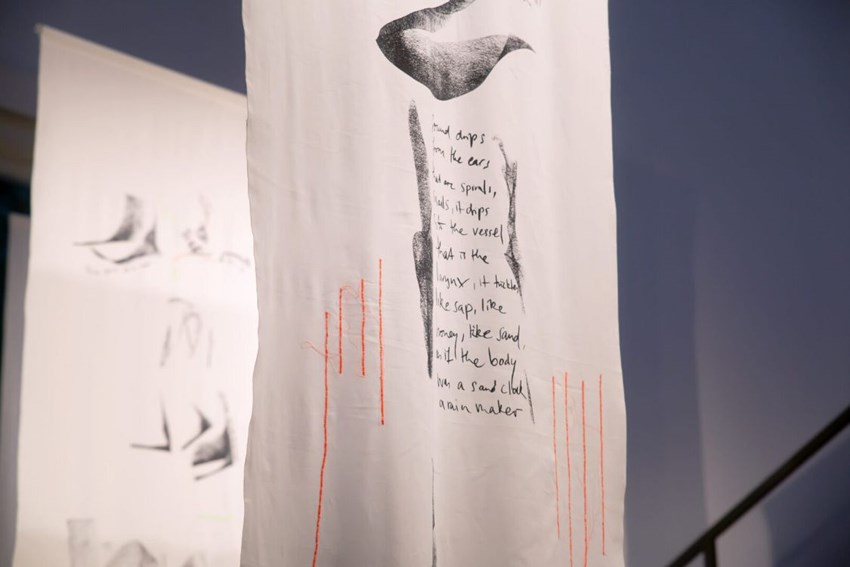 sound drips
from the ears
that are spirals,
it drips
to the vessel
that is the
larynx, it trickles
like sap, like
honey, like sand
as if the body
was a sand clock
a rain maker